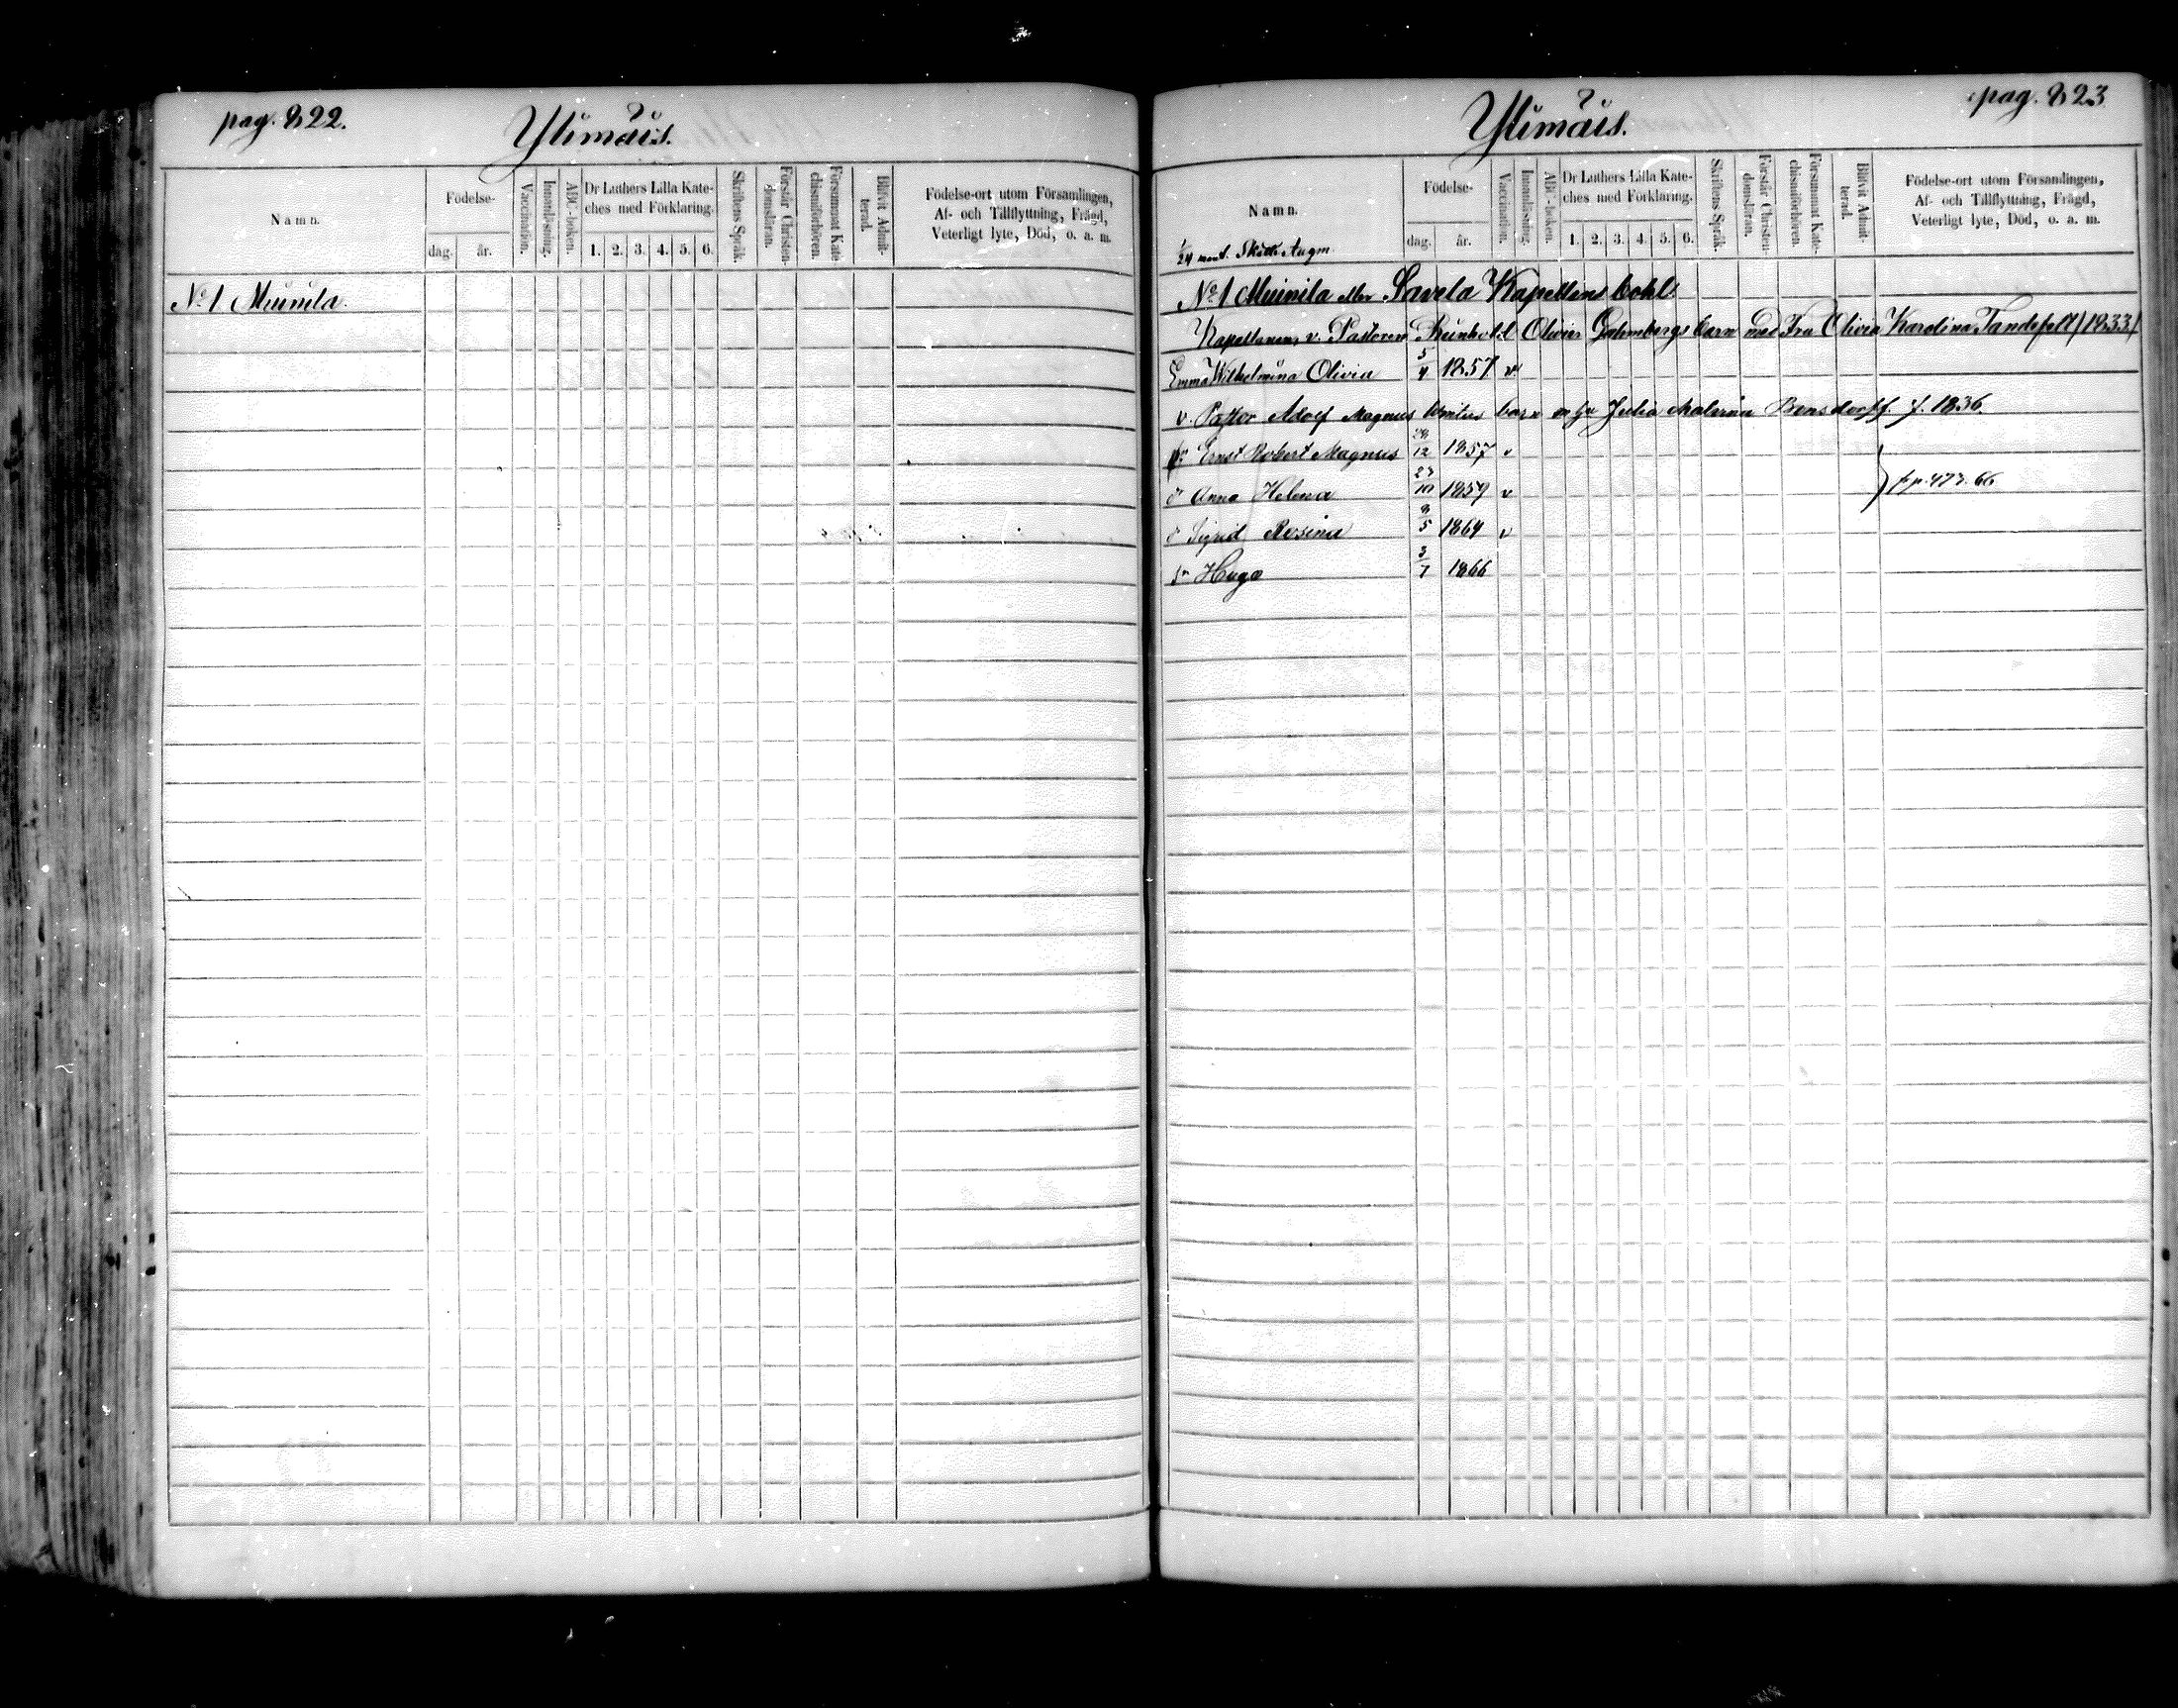 pag. 822.
Ylimäis.
Namn.
Födelse-
dag. år.
Vaccination.
Innanläsning.
ABC-boken.
Dr Luthers Lilla Kate-
ches med Förklaring.
1. 2. 3. 4. 5. 6.
Skriftens Språk.
Förstår Christen-
domsläran.
Försummat Kate-
chismiförhören.
Blifvit Admit-
terad.
Födelse-ort utom Församlingen,
Af- och Tillflyttning, Frägd,
Veterligt lyte, Död, o. a. m.
No 1 Muinila.
pag. 823
Ylimäis.
Namn.
1/24 mant. Skatte Augm.
Födelse-
dag. år.
Vaccination.
Innanläsning.
ABC-boken.
Dr Luthers Lilla Kate-
ches med Förklaring.
1. 2. 3. 4. 5. 6.
Skriftens Språk.
Förstår Christen-
domsläran.
Försummat Kate-
chismiförhören.
Blifvit Admit-
terad.
Födelse-ort utom Församlingen,
Af- och Tillflyttning, Frägd,
Veterligt lyte, Död, o. a. m.
No 1 Muinila eller Savela Kapellans bohl.
Kapellanens v. Pastoren Reinhold Olivier Gahmbergs barn med Fru Olivia Karolina Tandefelt /1833/
Emma Wilhelmina Olivia 5/4 1857 v.
v. Pastor Adolf Magnus barn m fru Julia Malvina Bensdorff. f. 1836
Ernst Robert Magnus 28/12 1857 v
d Anna Helena 27/10 1859 v
d Sigrid Rosina 8/5 1864 v
sn Hugo 3/7 1866